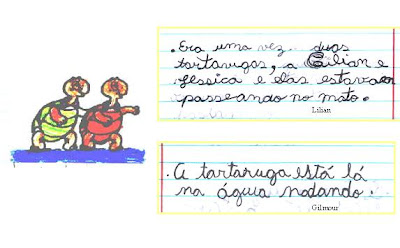 . Era uma vez.. duas
tartarugas, a Lilian e
Jessica e elas estavam
passeando no mato.
Lilian
. A tartaruga está lá
na águia nadando.
Gilmour